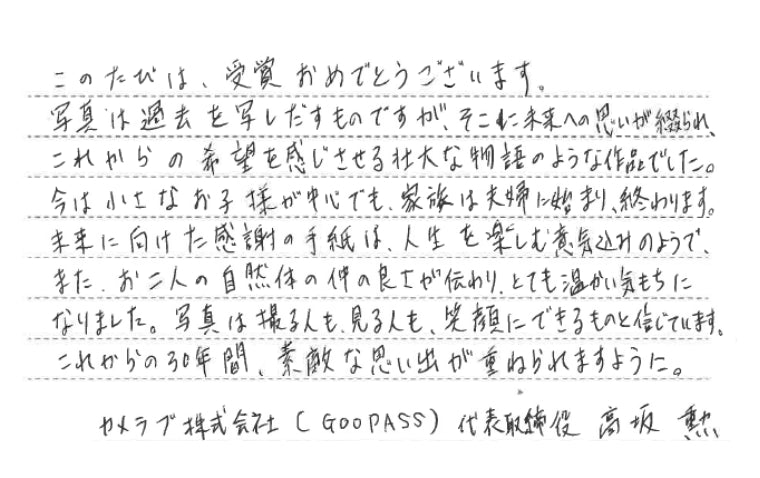 このたびは、受賞おめでとうございます。
写真は過去を写しだすものですが、そこに未来への思いが綴られ、
これからの希望を感じさせる壮大な物語のような作品でした。
今は小さなお子様が中心でも、家族は夫婦に始まり、終わります。
未来に向けた感謝の手紙は、人生を楽しむ意気込みのようで、
また、お二人の自然体の仲の良さが伝わり、とても温かい気もちに
なりました。写真は撮る人も、見る人も、笑顔にできるものと信じています。
これからの30年間、素敵な思い出が重ねられますように。
カメラブ株式会社(GOOPASS)代表取締役 高坂 勲